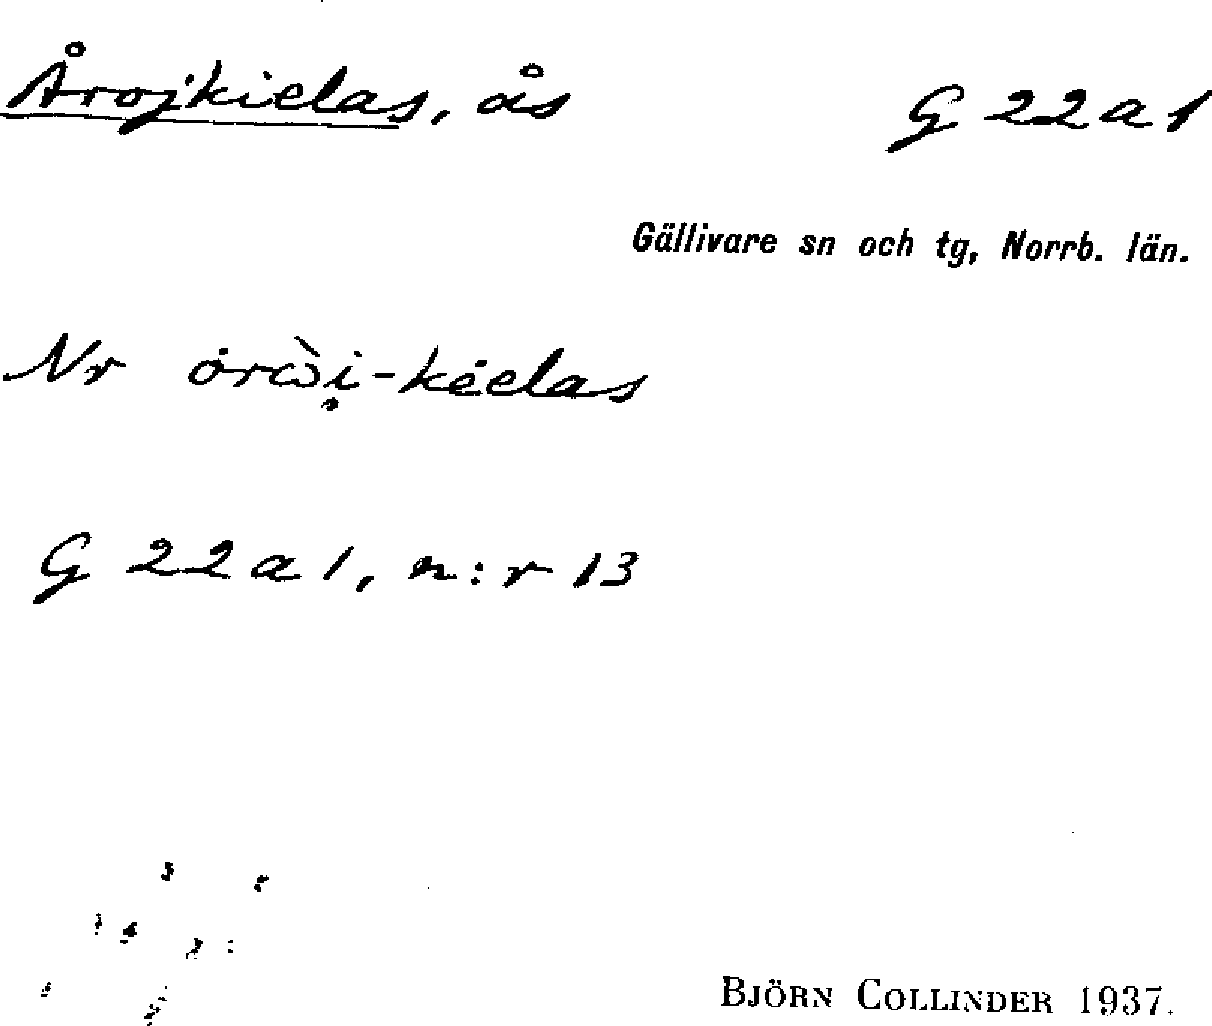 Årojkielas, ås G 22 a 1
Gällivare sn och tg, Norrb. län.
Nr ȯrɷ̀i̭-kėelas
G 22 a 1, n:r 13
BJÖRN COLLINDER 1937.